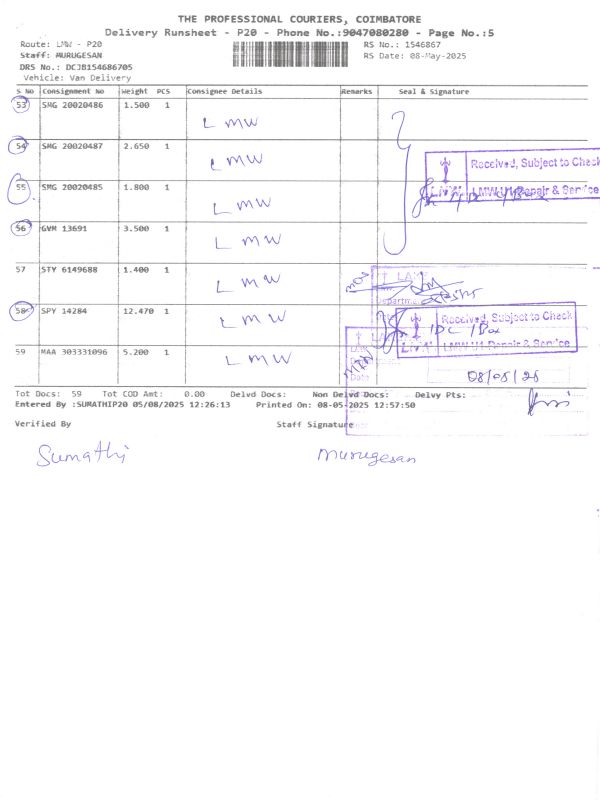 THE PROFESSIONAL COURIERS, COIMBATORE
Delivery Runsheet - P20 - Phone No.:9047080280 - Page No.:5
Route: LMW - P20
RS No.: 1546867
Staff: MURUGESAN
RS Date: 08-May-2025
DRS No.: DCJB154686705
Vehicle: Van Delivery
S No Consignment No Weight PCS Consignee Details Remarks Seal & Signature
53 SMG 20020486 1.500 1 LMW
54 SMG 20020487 2.650 1 LMW
Received, Subject to Check
55 SMG 20020485 1.800 1 LMW
LMW-U1 Repair & Service
56 GVM 13691 3.500 1 LMW
57 STY 6149688 1.400 1 LMW
58 SPY 14284 12.470 1 LMW
Received, Subject to Check
1 PC 1 Box
LMW-U1 Repair & Service
59 MAA 303331096 5.200 1 LMW
Date
08/05/25
Tot Docs: 59 Tot COD Amt: 0.00 Delvd Docs: Non Delvd Docs: Delvy Pts:
Entered By :SUMATHIP20 05/08/2025 12:26:13 Printed On: 08-05-2025 12:57:50
Verified By Staff Signature
Sumathi Murugesan